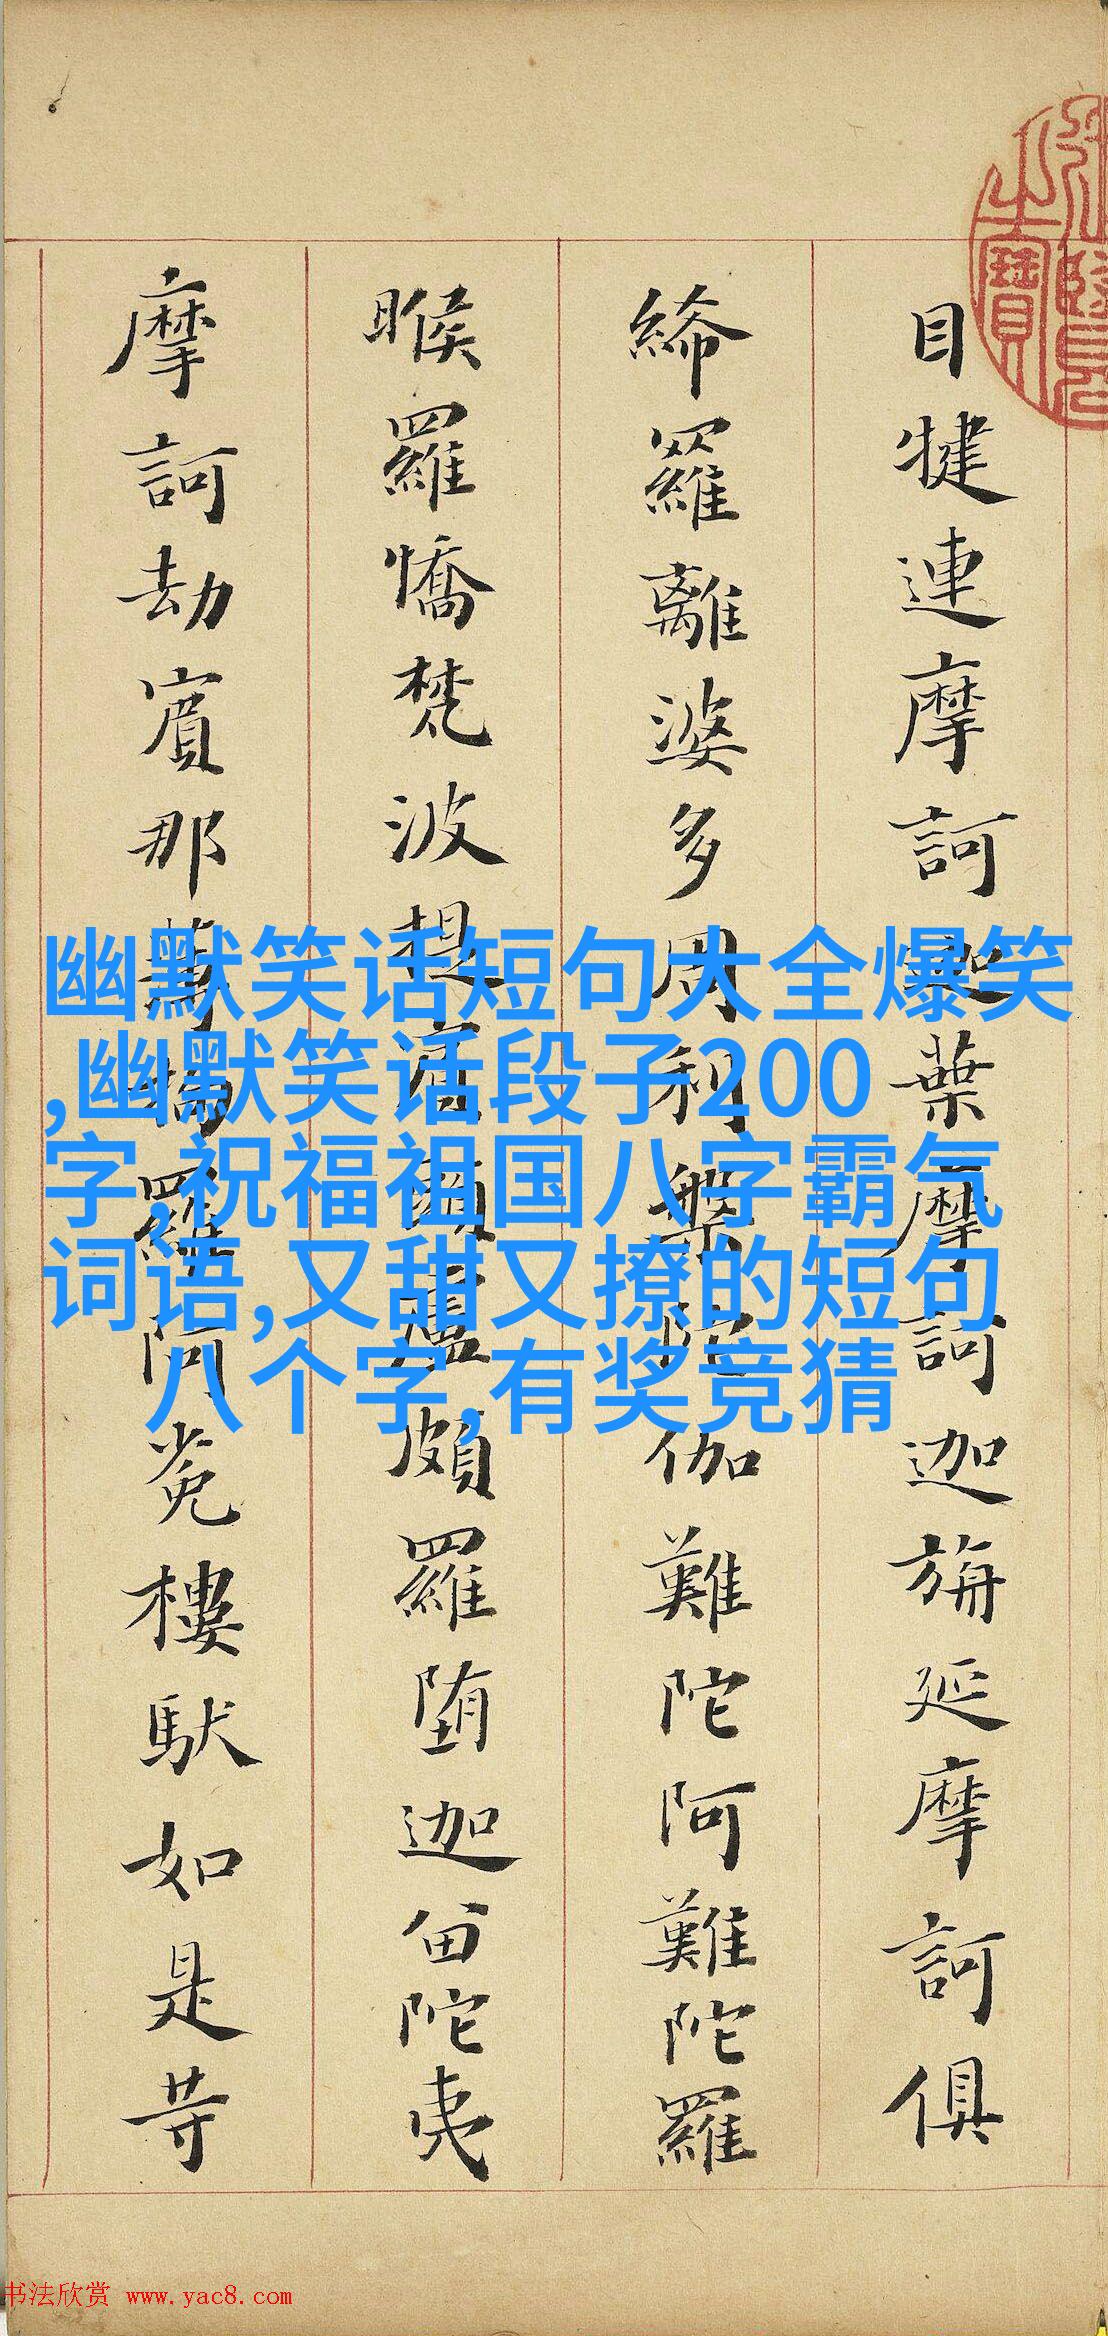 目犍連摩訶迦葉摩訶迦旃延摩訶俱
絺羅離婆多周利槃陀伽難陀阿難陀羅
睺羅憍梵波提賓頭盧頗羅堕迦留陀夷
摩訶劫賓那薄拘羅阿㝹樓馱如是等
幽默笑话短句大全爆笑
,幽默笑话段子200
字,祝福祖国八字霸气
词语,又甜又撩的短句
八个字,有奖竞猜
书法欣赏 www.yac8.com